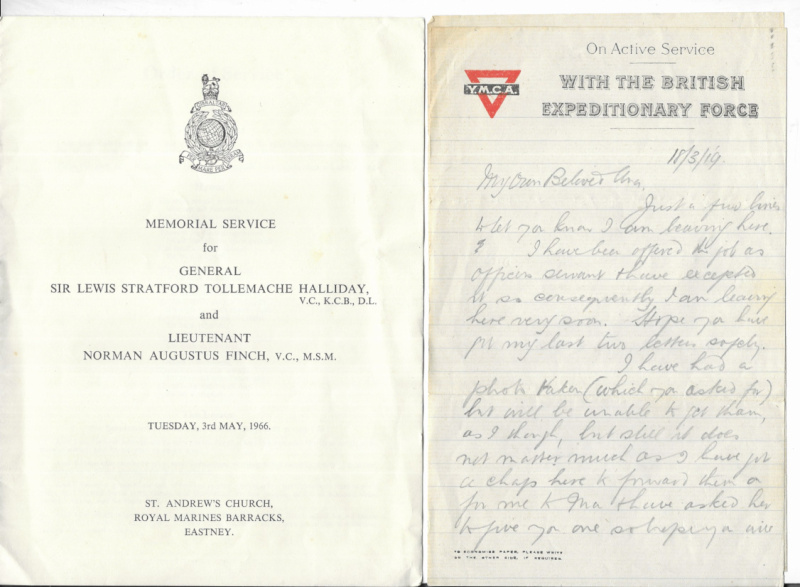 GIBRALTAR
PER MARE PER TERRAM
MEMORIAL SERVICE
for
GENERAL
SIR LEWIS STRATFORD TOLLEMACHE HALLIDAY,
V.C., K.C.B., D.L.
and
LIEUTENANT
NORMAN AUGUSTUS FINCH, V.C., M.S.M.
TUESDAY, 3rd MAY, 1966.
ST. ANDREW'S CHURCH,
ROYAL MARINES BARRACKS,
EASTNEY.
On Active Service
Y.M.C.A.
WITH THE BRITISH
EXPEDITIONARY FORCE
18/3/19.
My Own Beloved
Just a few lines
to let you know I am leaving here.
I have been offered the job as
officers servant & have excepted
it so consequently I am leaving
here very soon. Hope you have
got my last two letters safely.
I have had a
photo taken (which you asked for)
but will be unable to get them,
as I though, but still it does
not matter much as I have got
a chap here to forward them on
for me to & have asked her
to give you one so hope you will
TO ECONOMISE PAPER, PLEASE WRITE
ON THE OTHER SIDE, IF REQUIRED.